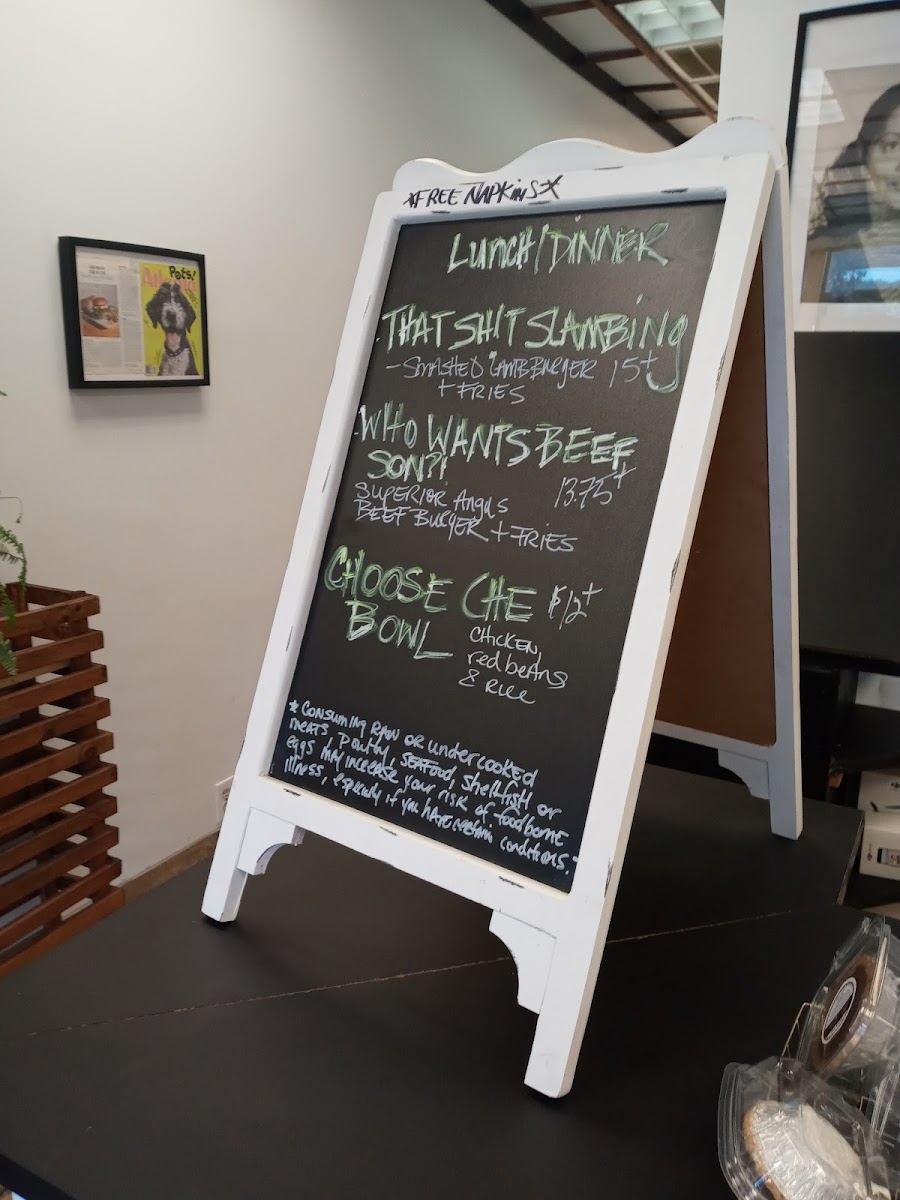 *FREE NAPKINS*
LUNCH/DINNER
THAT SHIT SLAMBING
- SMASHED LAMB BURGER 15+
+ FRIES
WHO WANTS BEEF
SON?!
13.75+
SUPERIOR Angus
BEEF BURGER + FRIES
CHOOSE CHE $12+
BOWL
CHICKEN,
red beans
& RICE
* CONSUMING RAW OR undercooked
meats, Poultry, SEAFOOD, shellfish or
eggs MAY increase your risk of foodborne
illness, especially if you HAVE certain conditions.
Pets!